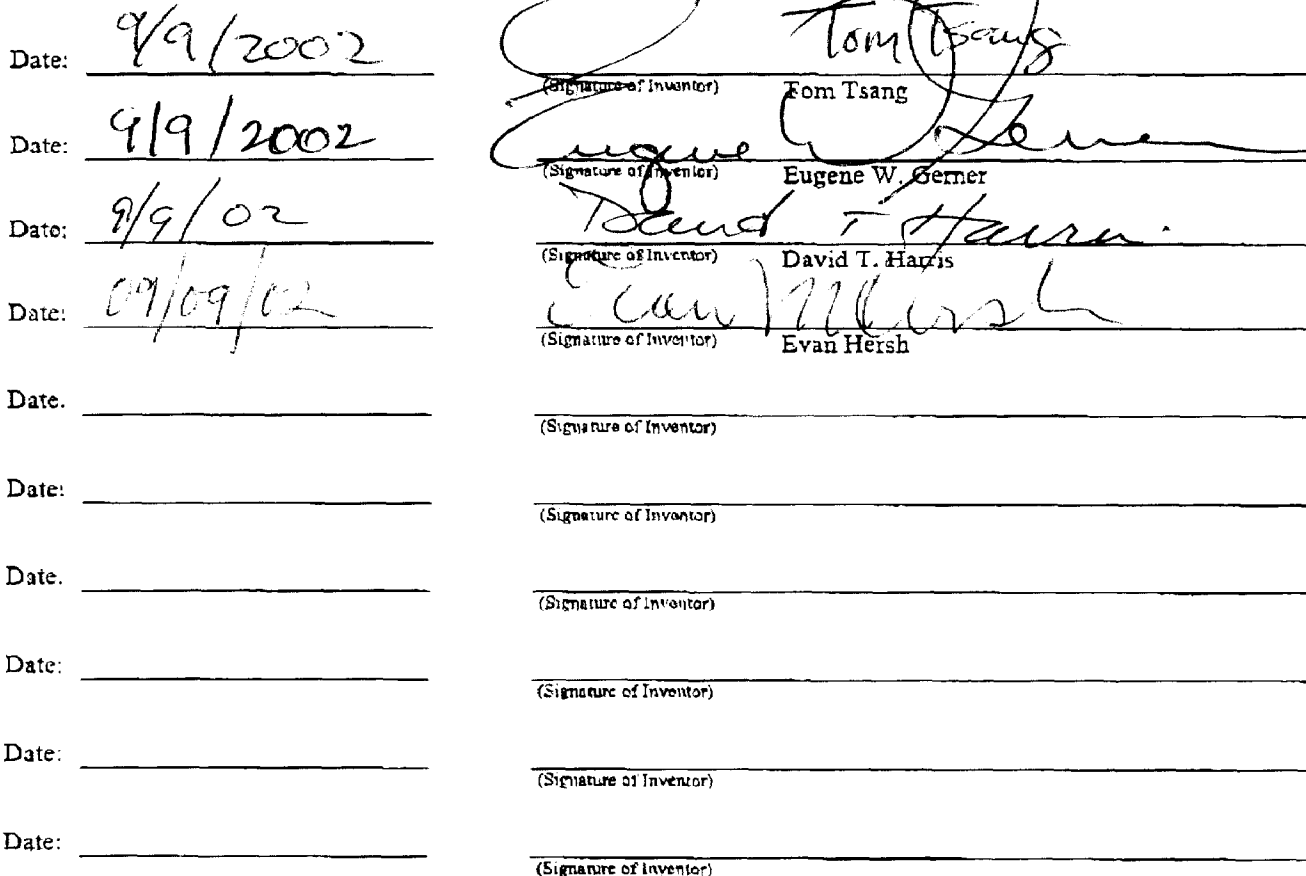 Date: 9/9/2002 Tom Tsang
(Signature of Inventor) Tom Tsang
Date: 9/9/2002 Eugene W. Gerner
(Signature of Inventor) Eugene W. Gerner
Date: 9/9/02 David T Harris
(Signature of Inventor) David T. Harris
Date: 09/09/02 Evan M Hersh
(Signature of Inventor) Evan Hersh
Date.
(Signature of Inventor)
Date:
(Signature of Inventor)
Date.
(Signature of Inventor)
Date:
(Signature of Inventor)
Date:
(Signature of Inventor)
Date:
(Signature of Inventor)